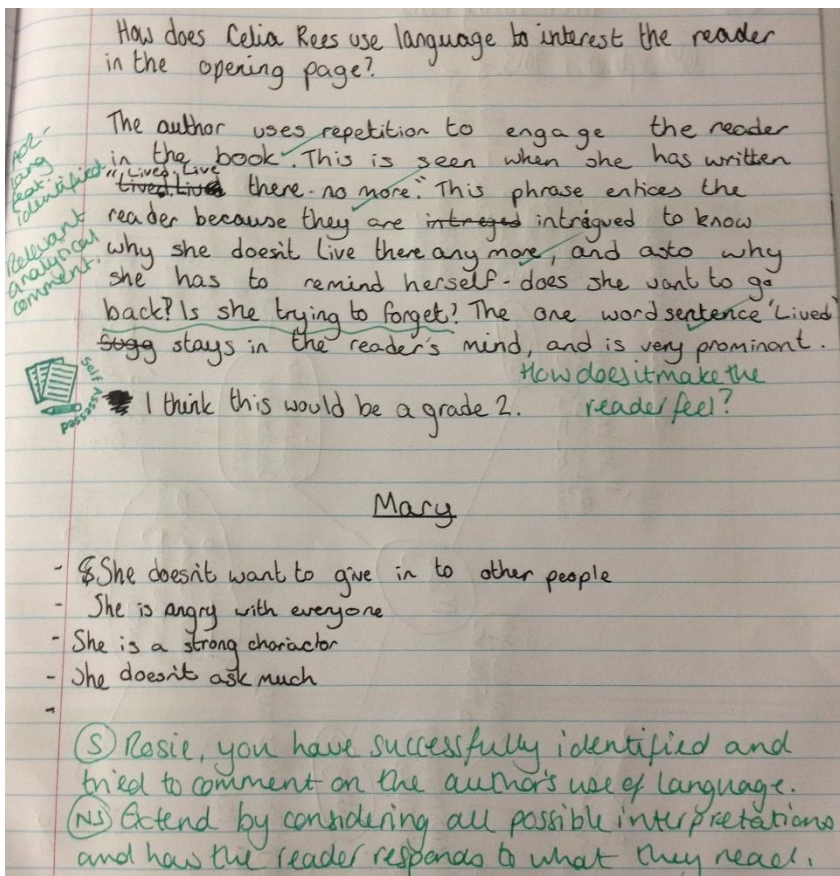 How does Celia Rees use language to interest the reader
in the opening page?
AO2-
lang
feat.
identified.
Relevant
analytical
comment.
The author uses repetition to engage the reader
in the book. This is seen when she has written
"Lived, Live
Lived, Lived there no more." This phrase entices the
reader because they are intreged intrigued to know
why she doesn't live there any more, and asto why
she has to remind herself - does she want to go
back? Is she trying to forget? The one word sentence 'Lived'
Sugg stays in the reader's mind, and is very prominant.
How does it make the
reader feel?
Self
Assessed
I think this would be a grade 2.
Mary
- She doesn't want to give in to other people
- She is angry with everyone
- She is a strong charactor
- She doesn't ask much
-
(S) Rosie, you have successfully identified and
tried to comment on the author's use of language.
(NS) Extend by considering all possible interpretations
and how the reader responds to what they read.